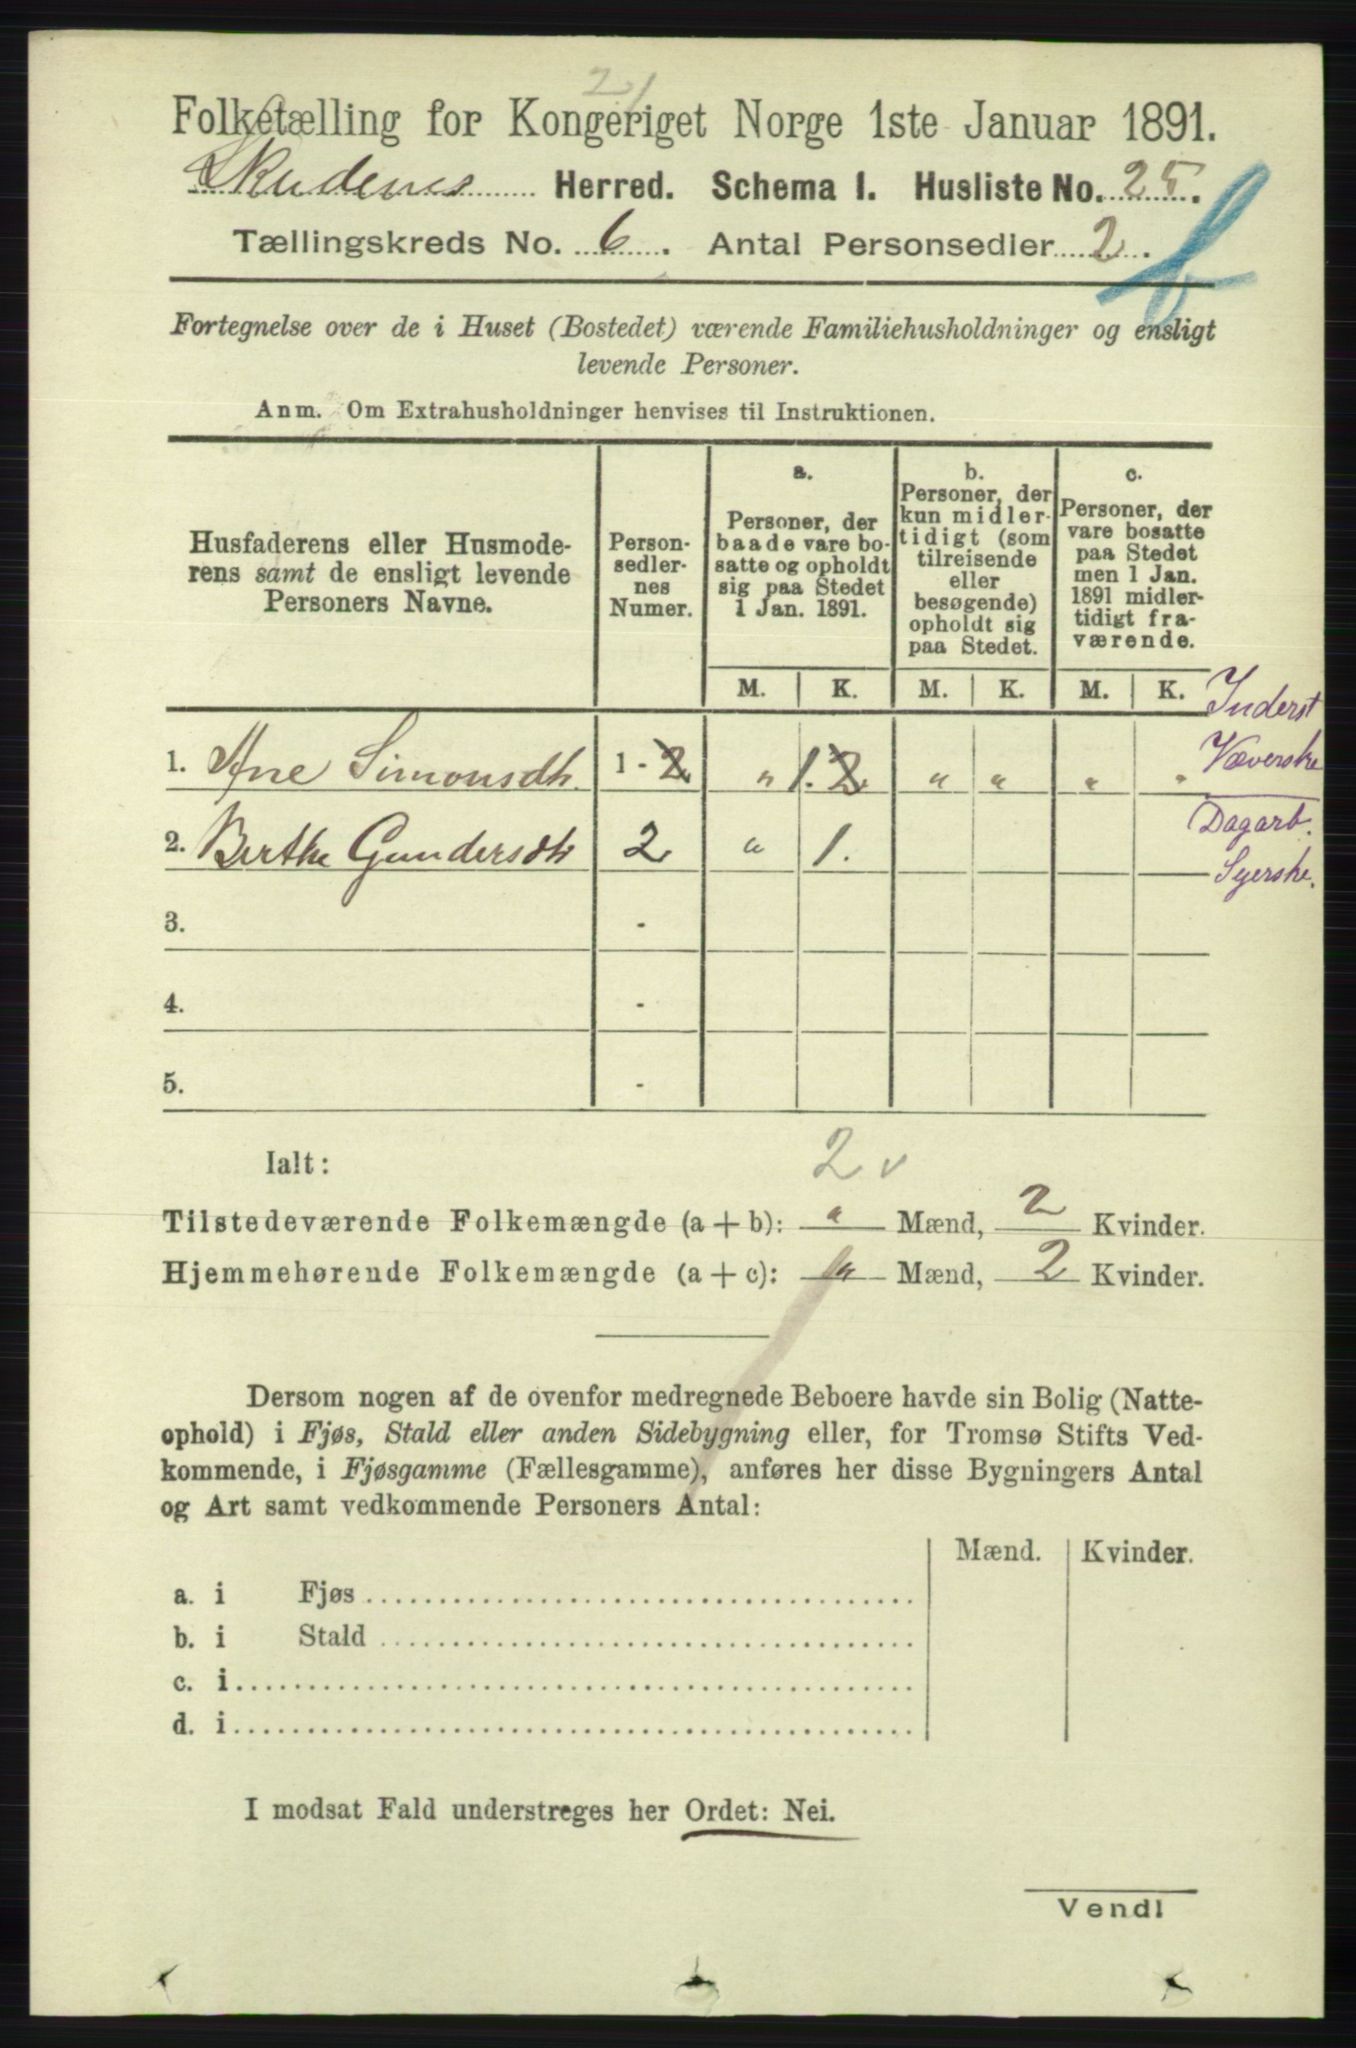 21
Folketælling for Kongeriget Norge 1ste Januar 1891.
Skudenes Herred. Schema 1. Husliste No. 25.
Tællingskreds No. 6. Antal Personsedler 2.
Fortegnelse over de i Huset (Bostedet) værende Familiehusholdninger og ensligt
levende Personer.
Anm. Om Extrahusholdninger henvises til Instruktionen.
Husfaderens eller Husmode-
rens samt de ensligt levende
Personers Navne.
Person-
sedler-
nes
Numer.
a.
Personer, der
baade vare bo-
satte og opholdt
sig paa Stedet
1 Jan. 1891.
b.
Personer, der
kun midler-
tidigt (som
tilreisende
eller
besøgende)
opholdt sig
paa Stedet.
c.
Personer, der
vare bosatte
paa Stedet
men 1 Jan.
1891 midler-
tidigt fra-
værende.
M. K. M. K. M. K.
Inderst
Væverske
1. Ane Simonsdtr. 1 - 2 " 1. 2 " " " "
Dagarb.
Syerske.
2. Berthe Gundersdtr 2 " 1.
3. -
4. -
5. -
2 v
Ialt:
Tilstedeværende Folkemængde (a + b): " Mænd, 2 Kvinder.
Hjemmehørende Folkemængde (a + c): " Mænd, 2 Kvinder.
Dersom nogen af de ovenfor medregnede Beboere havde sin Bolig (Natte-
ophold) i Fjøs, Stald eller anden Sidebygning eller, for Tromsø Stifts Ved-
kommende, i Fjøsgamme (Fællesgamme), anføres her disse Bygningers Antal
og Art samt vedkommende Personers Antal:
Mænd. Kvinder.
a. i Fjøs
b. i Stald
c. i
d. i
I modsat Fald understreges her Ordet: Nei.
Vend!